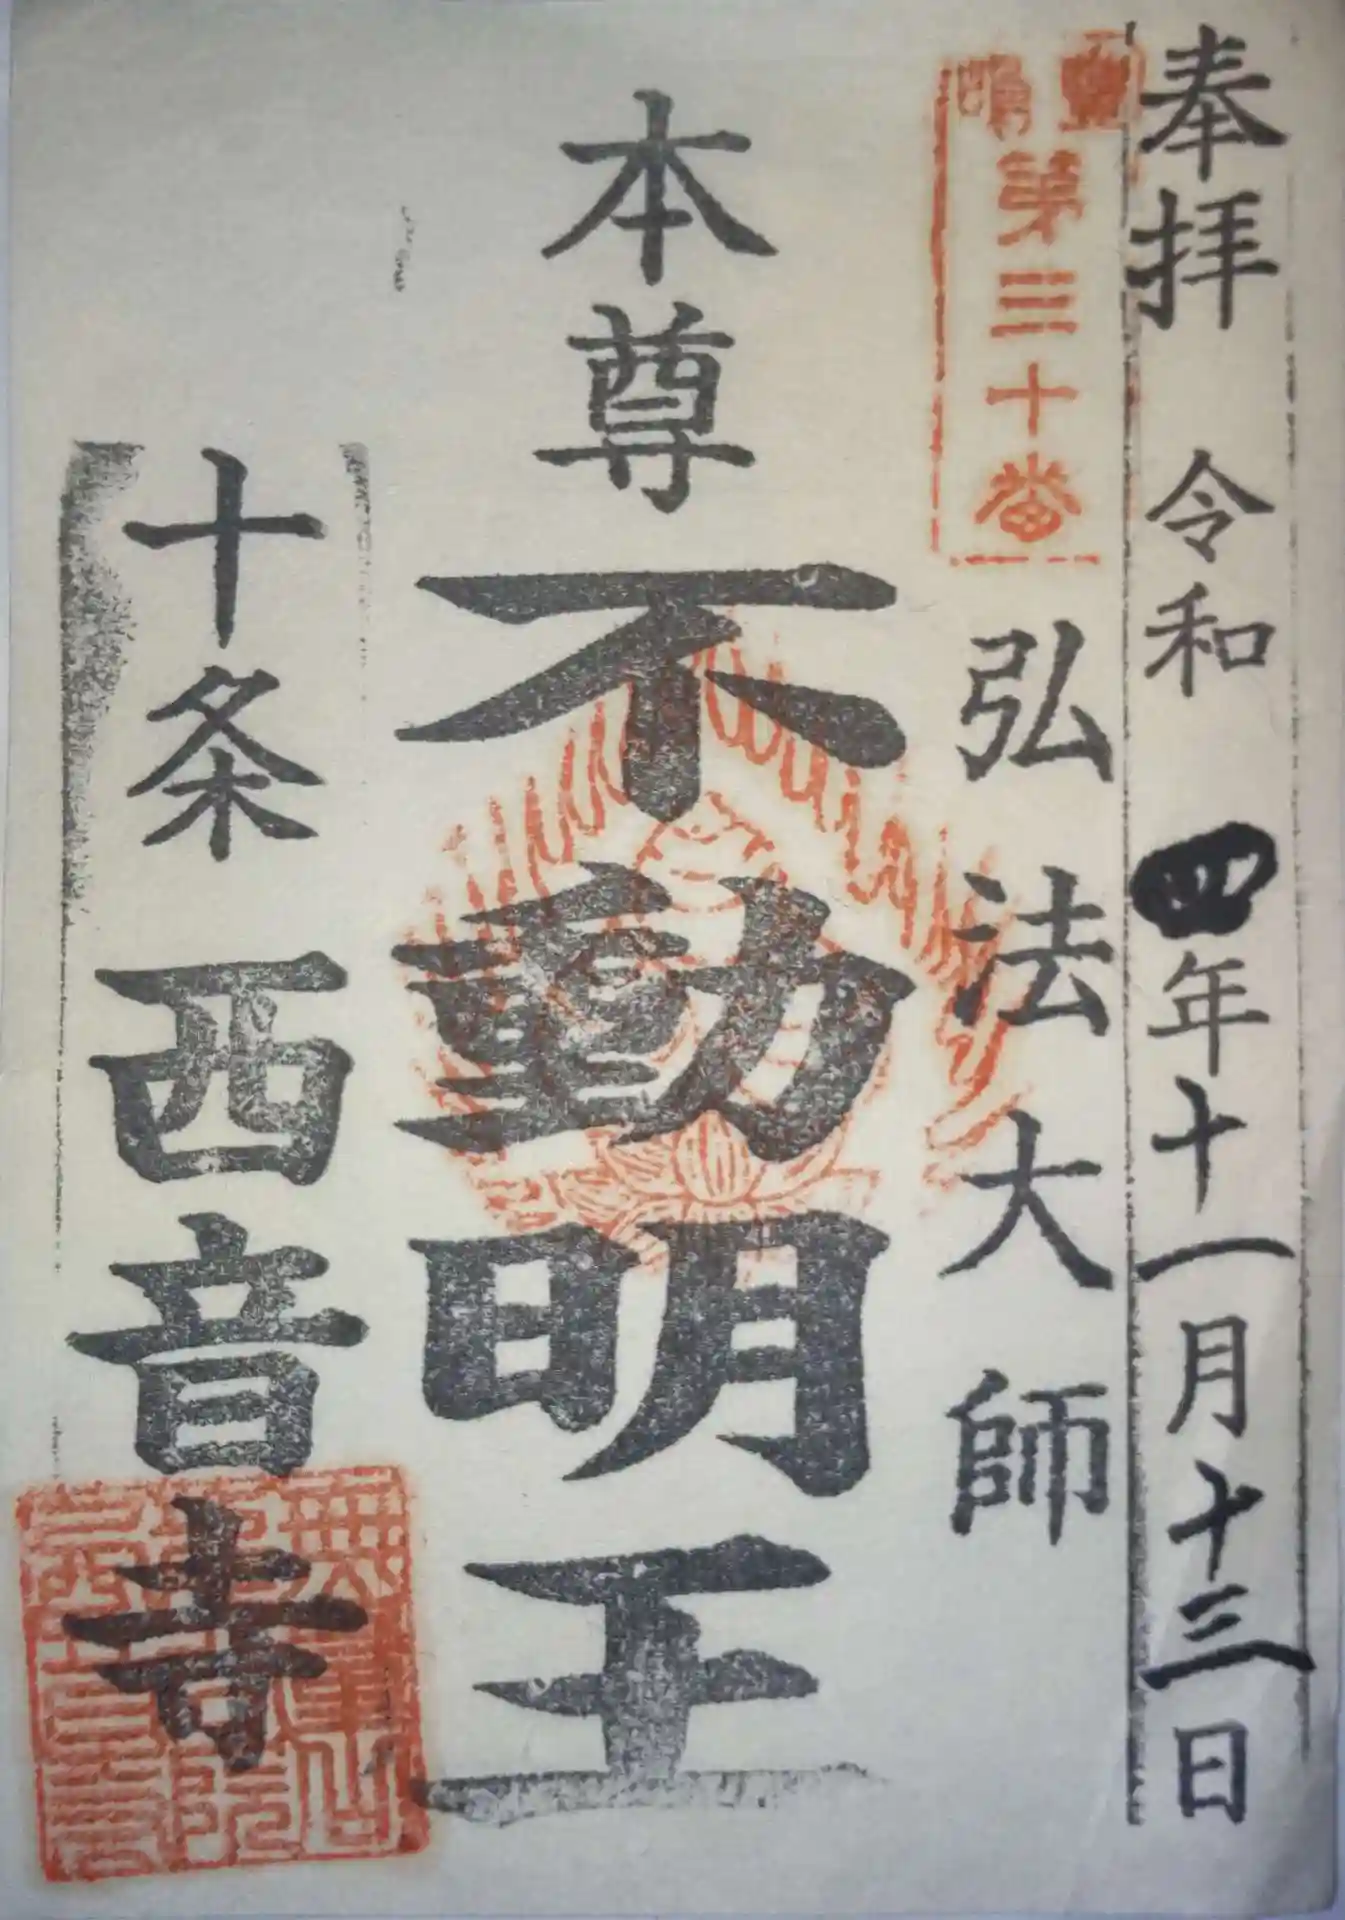 奉拝 令和 四年十一月十三日
第三十番
弘法大師
本尊 不動明王
十条 西音寺